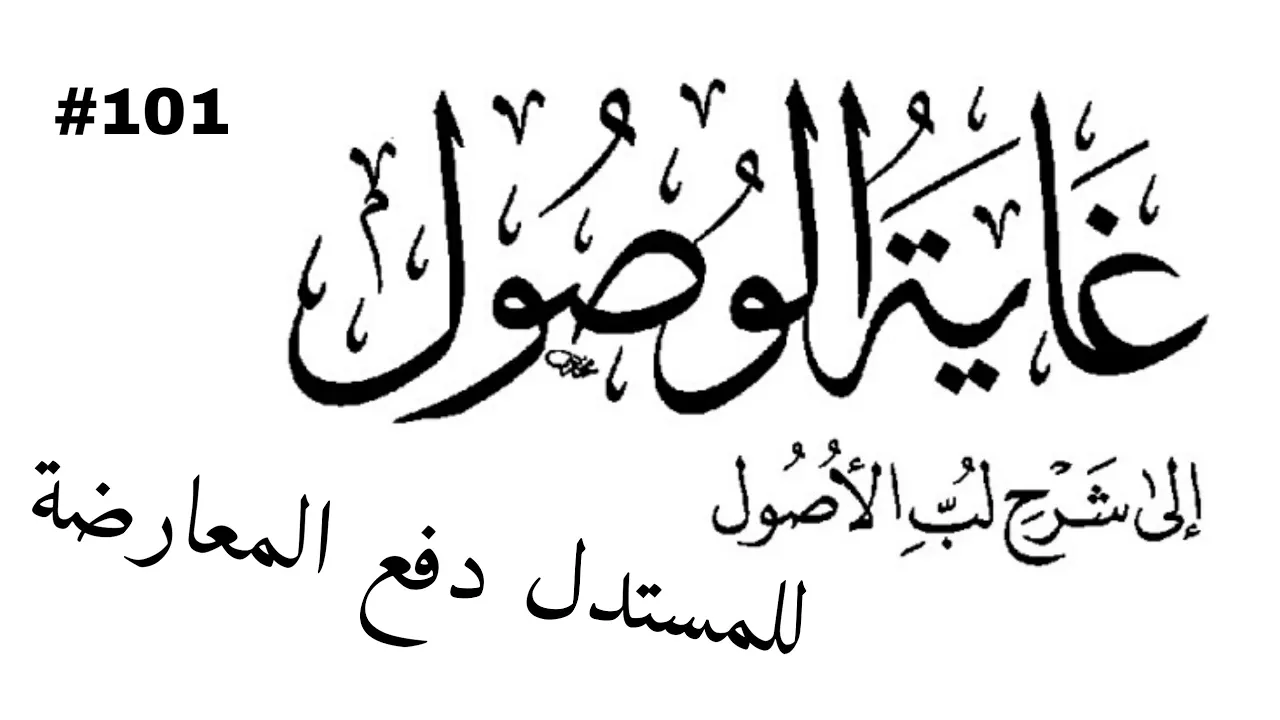 #101
غَايَةُ الْوُصُول
إلى شَرْحِ لُبِّ الأُصُول
للمستدل دفع المعارضة